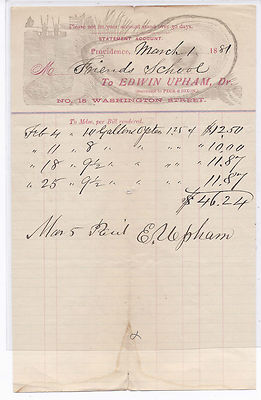 Please not let your account stand over 30 days.
STATEMENT ACCOUNT.
Providence, March 1 1881
M Friends School
To EDWIN UPHAM, Dr.
Successor to PECK &
No. 15 WASHINGTON STREET.
To Mdse. per Bill rendered.
Feb 4 10 Gallons 125 $12.50
" 11 " 8 " " " " 10.00
" 18 " 9½ " " " " 11.87
" 25 " 9½ " " " " 11.87
$46.24
Mar 5 Paid E. Upham